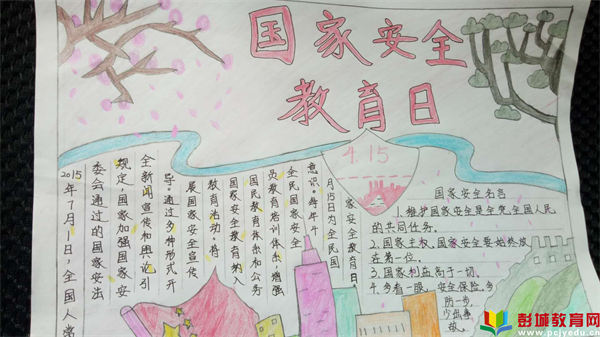 国家安全
教育日
4.15
2015年7月1日,全国人常
委会通过的国家安法
规定,国家加强国家安
全新闻宣传和舆论引
导。通过多种形式开
展国家安全宣传
教育活动。将
国家安全教育纳入
国民教育体系和公务
员教育培训体系增强
全民国家安全
意识。每年4
月15日为全民国
家安全教育日
国家安全名言
1.维护国家安全是全党全国人民
的共同任务。
2.国家主权,国家安全要始终放
在第一位。
3.国家利益高于一切。
4.多看一眼,安全保险,多
防一步,
少出事
故。
彭城教育网
www.pcjyedu.cn